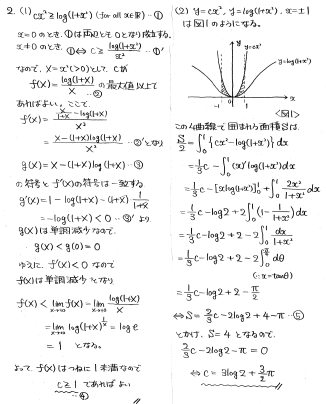 2. (1) cx² ≧ log(1+x²) (for all x∈R) …①
x=0のとき、①は両辺とも0となり成立する。
x≠0のとき、①⇔ c≧ log(1+x²)/x² …①'
なので、X=x²(>0)として、Cが
f(X)= log(1+X)/X …② の最大値以上で
あればよい。ここで
f'(X)= (X/(1+X) - log(1+X))/X²
= (X-(1+X)log(1+X))/X² …②' となり
g(X)= X-(1+X)log(1+X) …③
の符号と f'(X)の符号は一致する
g'(X)= 1-log(1+X)-(1+X)1/(1+X)
= -log(1+X) <0 …③' より、
g(X)は単調減少なので、
g(X) < g(0) = 0
ゆえに、f'(X)<0 なので
f(X)は単調減少となり
f(X) < lim f(X) = lim log(1+X)/X
= lim log(1+X)^(1/X) = log e
= 1 となる。
よって、f(X)はつねに1未満なので
c≧1 であればよい
…④
(2) y=cx², y=log(1+x²), x=±1
は図1のようになる。
y
y=cx²
y=log(1+x²)
-1 1 x
<図1>
この4曲線で囲まれる面積Sは
S/2 = ∫₀¹ {cx²-log(1+x²)} dx
= 1/3 c - ∫₀¹ (x)' log(1+x²) dx
= 1/3 c - [x log(1+x²)]₀¹ + ∫₀¹ 2x²/(1+x²) dx
= 1/3 c - log2 + 2∫₀¹ (1 - 1/(1+x²)) dx
= 1/3 c - log2 + 2 - 2∫₀¹ dx/(1+x²)
= 1/3 c - log2 + 2 - 2∫₀^(π/4) dθ
(∵ x=tanθ)
= 1/3 c - log2 + 2 - π/2
⇔ S = 2/3 c - 2log2 + 4 - π …⑤
とかけ、S=4 となるので、
2/3 c - 2log2 - π = 0
⇔ c = 3log2 + 3/2 π